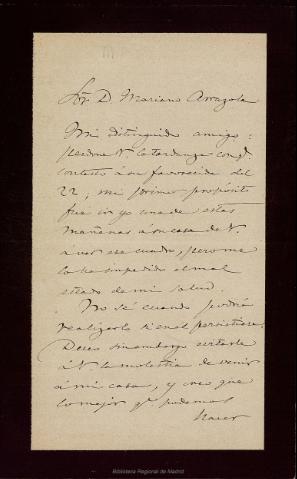 Sor. D. Mariano Arrazola
Mi distinguido amigo:
perdone V. la tardanza con qe.
contesto á su favorecida del
22; mi primer propósito
fue ir yo una de estas
mañanas á su casa de V.
á ver ese cuadro, pero me
lo ha impedido el mal
estado de mi salud.
No sé cuando podré
realizarlo si en él persistiera.
Deseo sin embargo evitarle
á V. la molestia de venir
á mi casa, y creo que
lo mejor qe. podemos
hacer
Biblioteca Regional de Madrid